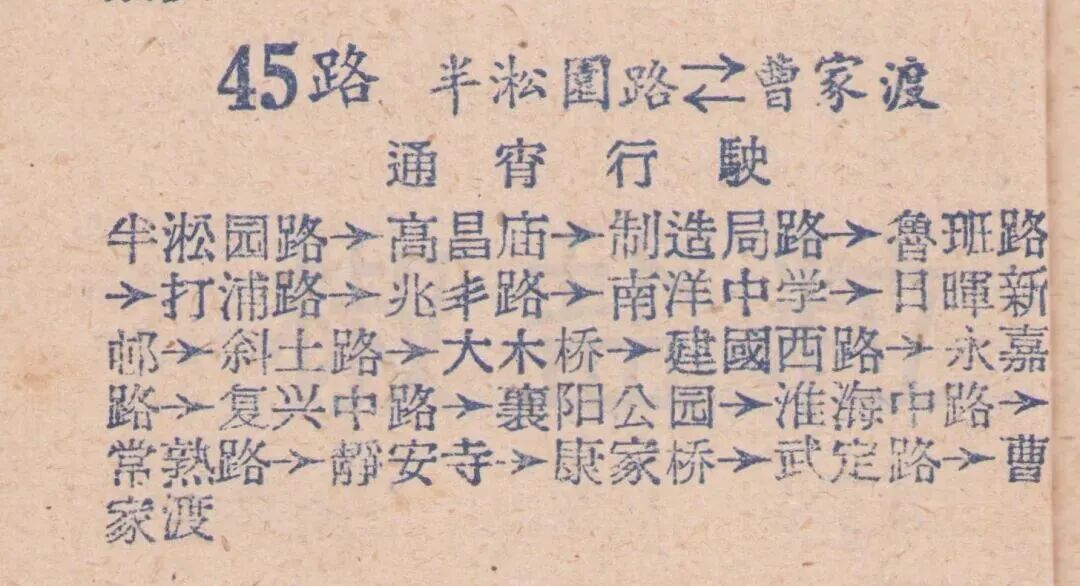 45路 半淞園路⇄曹家渡
通宵行駛
半淞园路→高昌庙→制造局路→魯班路
→打浦路→兆丰路→南洋中学→日暉新
邨→斜土路→大木桥→建國西路→永嘉
路→复兴中路→襄阳公园→淮海中路→
常熟路→靜安寺→康家桥→武定路→曹
家渡